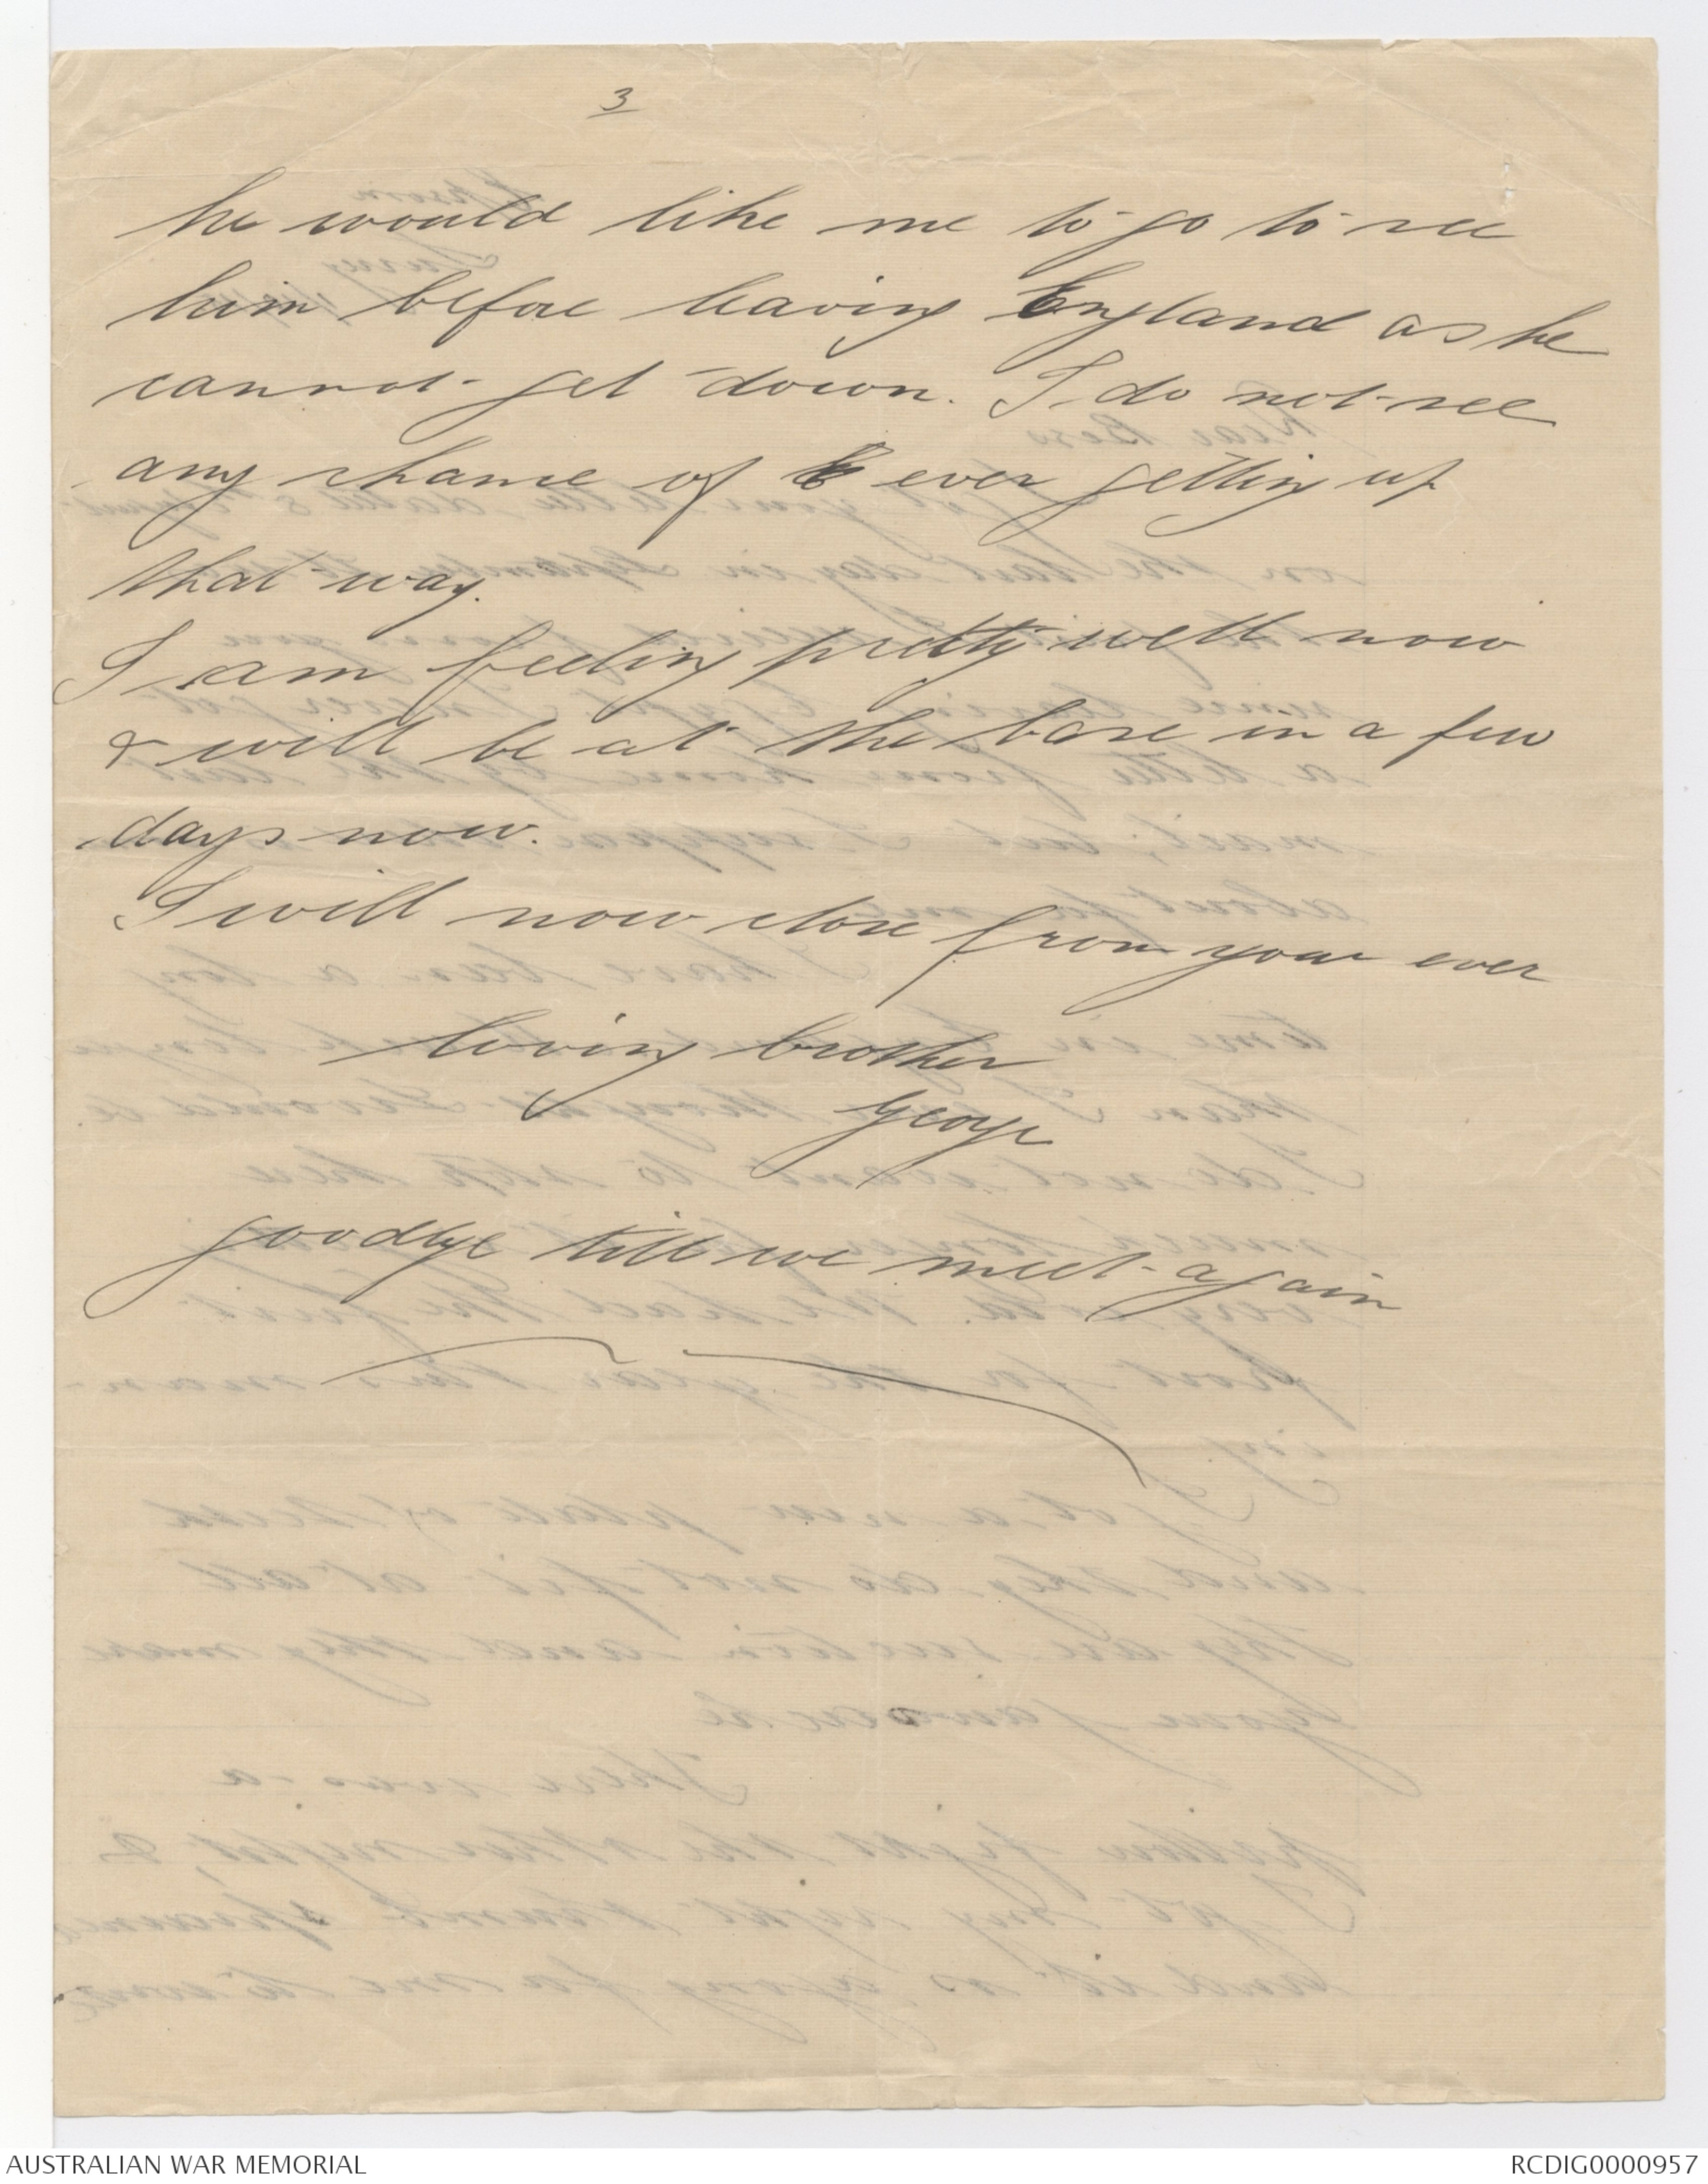 3
he would like me to go to see
him before leaving England as he
cannot get down. I do not see
any chance of ever getting up
that way.
I am feeling pretty well now
& will be at the base in a few
days now.
I will now close from your ever
loving brother
George
goodbye till we meet again
AUSTRALIAN WAR MEMORIAL
RCDIG0000957